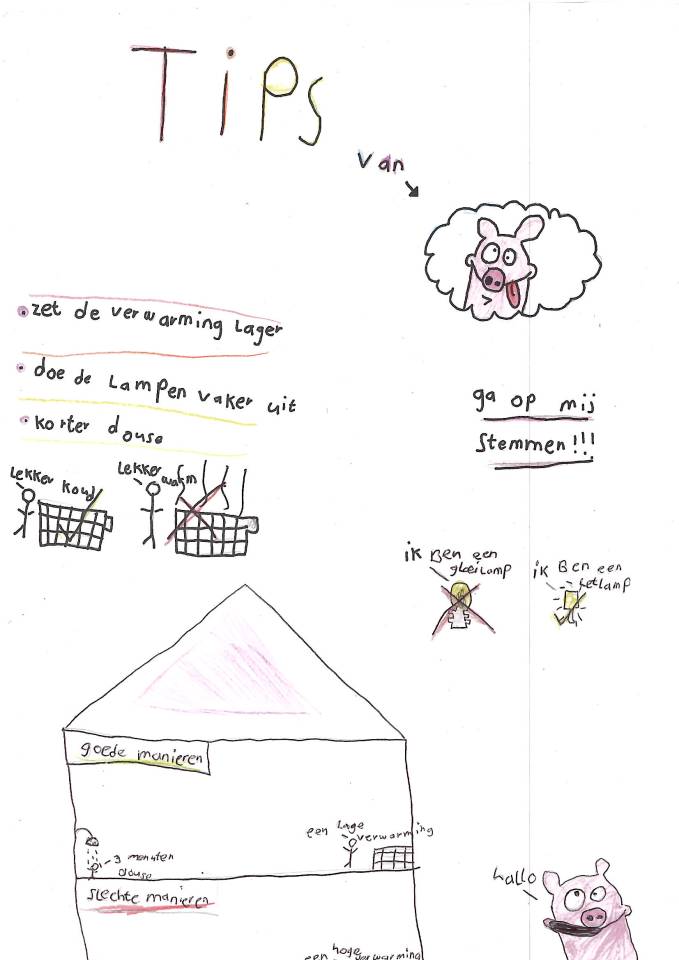 Tips
van
• zet de verwarming lager
• doe de lampen vaker uit
• korter douse
ga op mij
stemmen!!!
Lekker koud
Lekker warm
ik Ben een
gloeilamp
ik Ben een
letlamp
goede manieren
een lage
verwarming
3 menuten
douse
slechte manieren
hallo
een hoge
verwarming